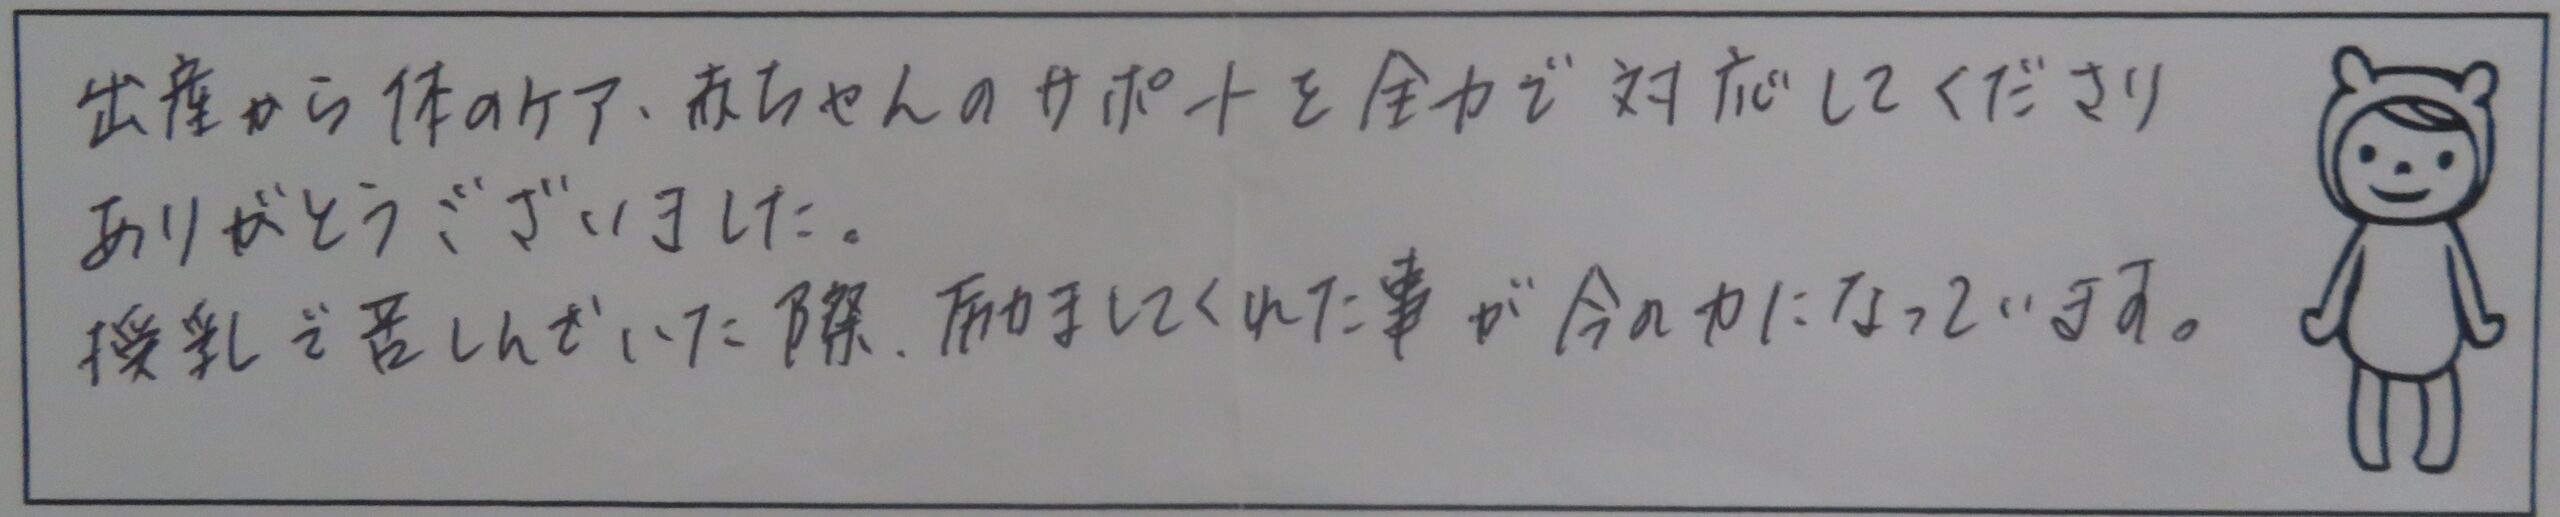 出産から体のケア、赤ちゃんのサポートを全力で対応してくださり
ありがとうございました。
授乳で苦しんでいた際、励ましてくれた事が今の力になっています。